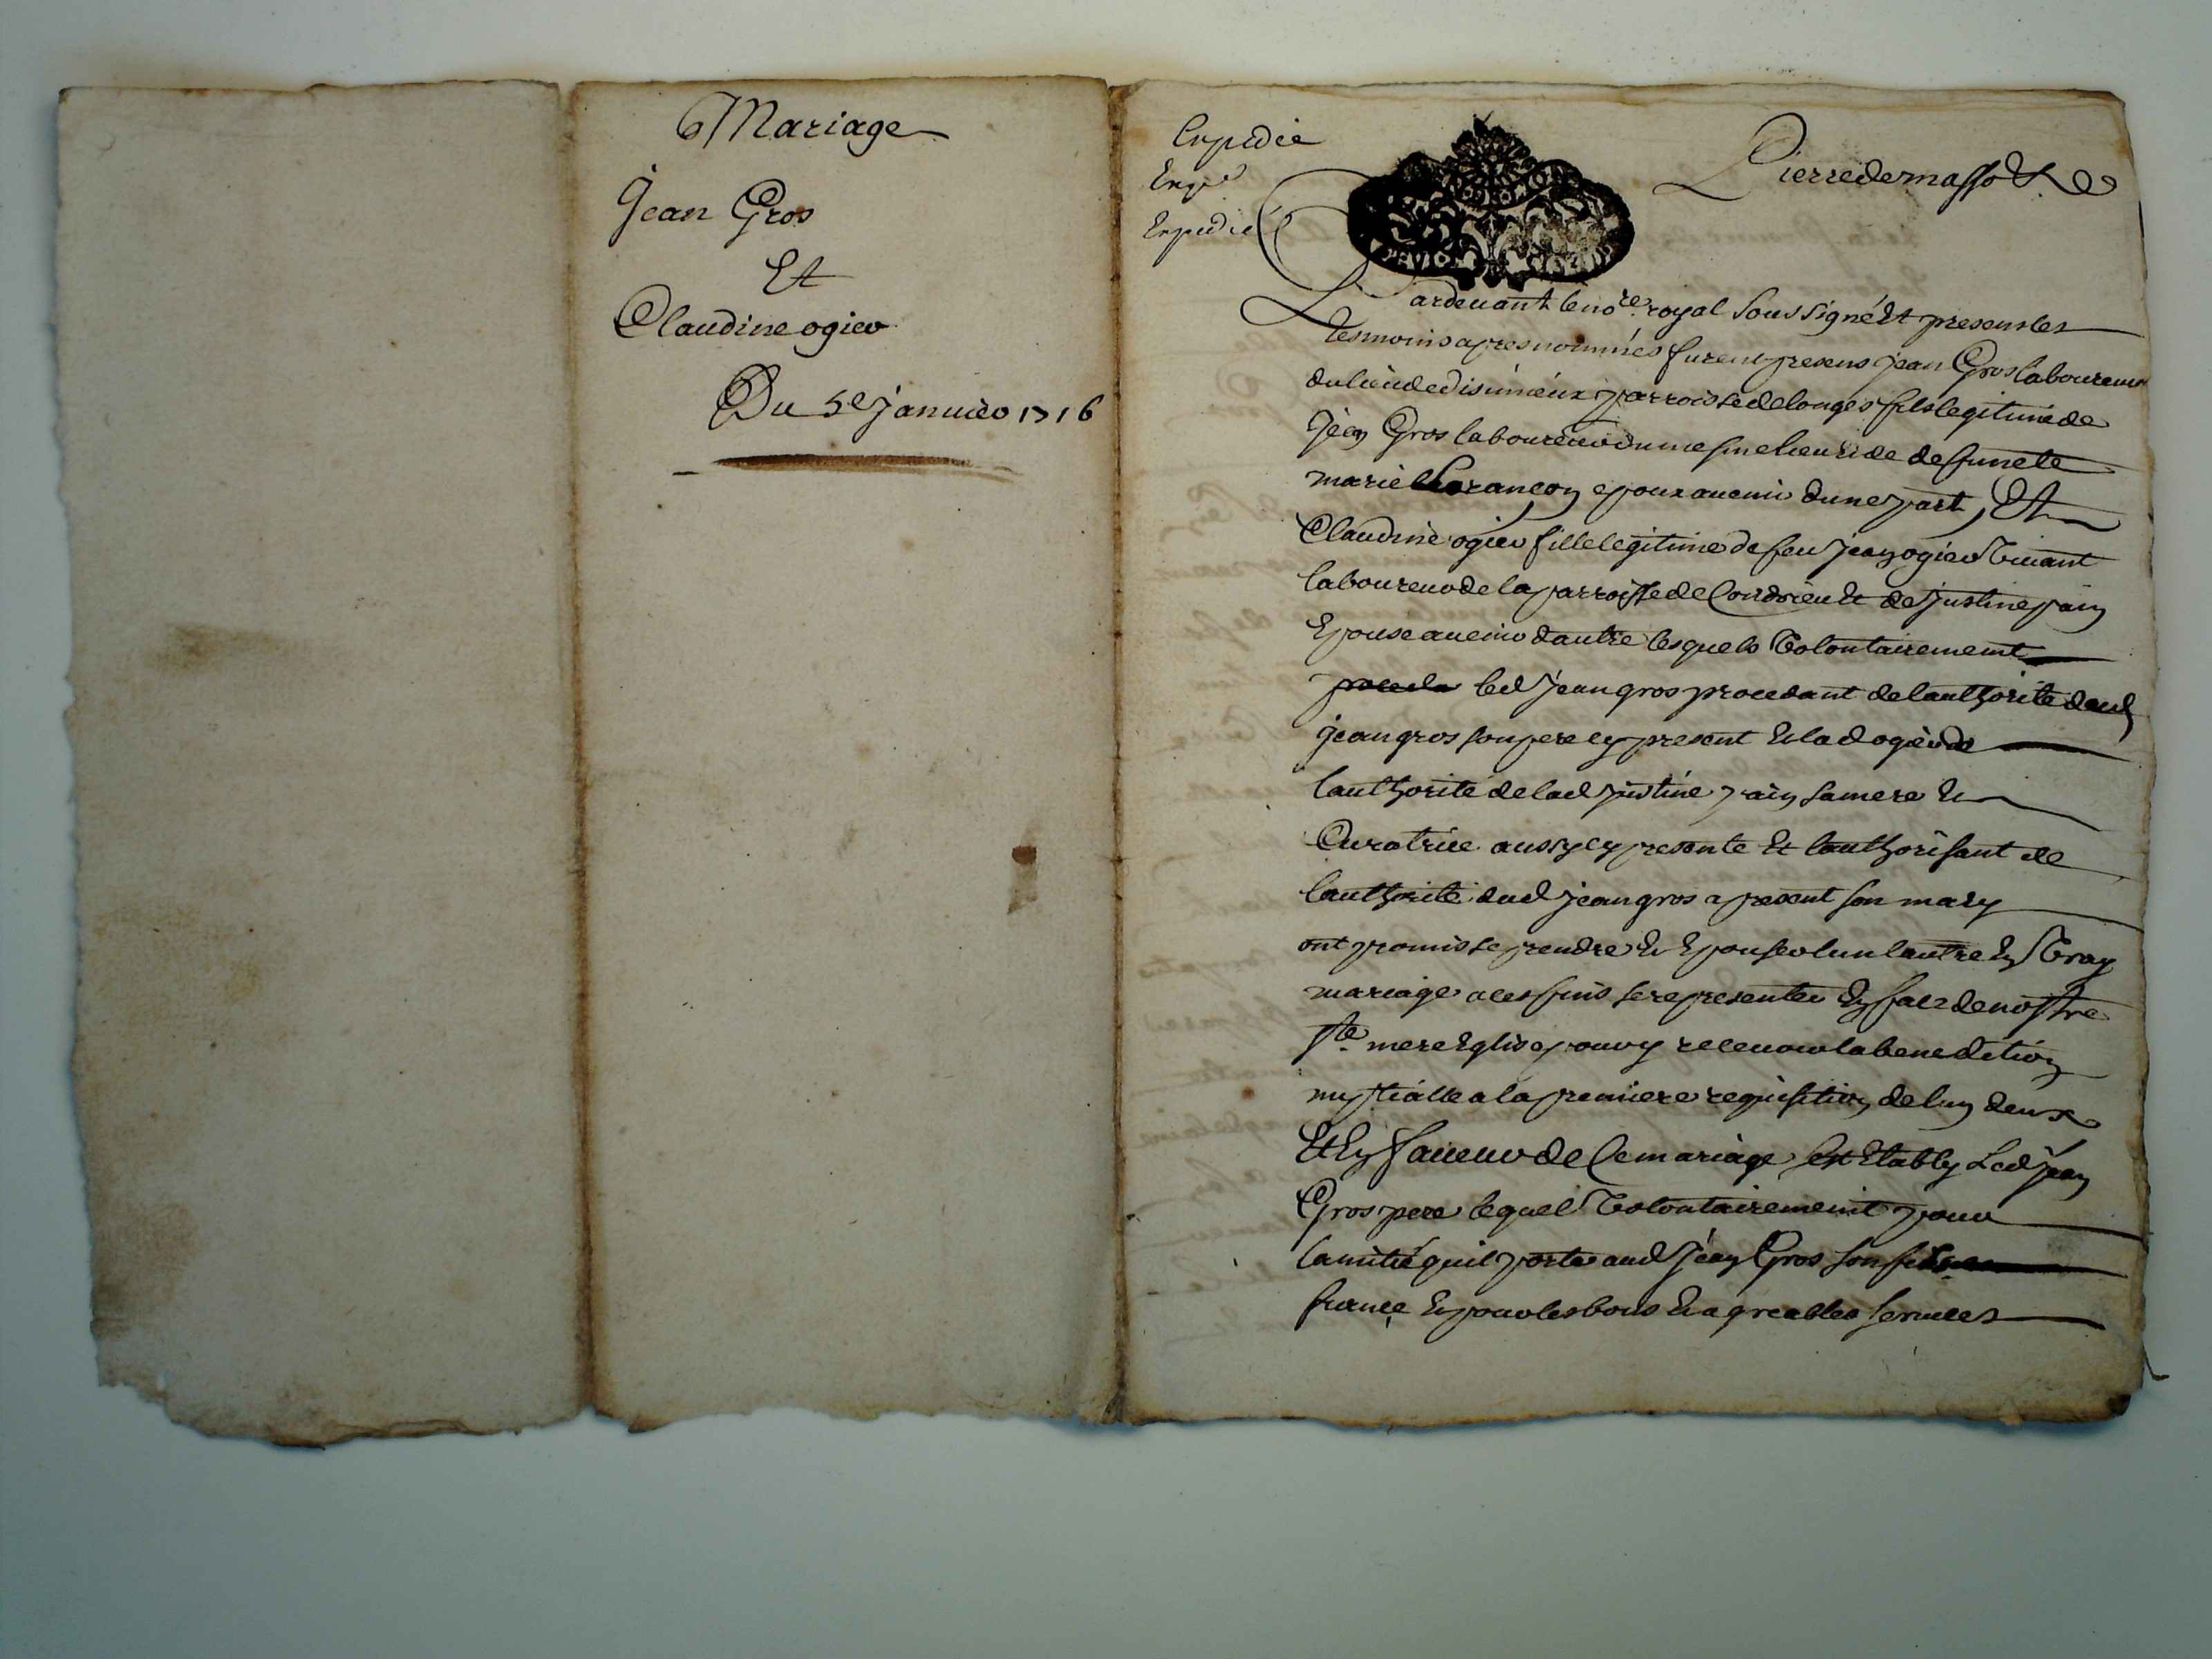 Mariage
Jean Gros
Et
Claudine ogier
Du 5e janvier 1716
Expedié
Expedié
Pardevant le nore royal soussigné Et presens les
tesmoins apres nommés furent presens jean Gros laboureur
du lieu de disimieux parroisse de longes fils legitime de
Jean Gros laboureur du mesme lieu & de deffuncte
marie epoux avenir dune part, Et
Claudine ogier fille legitime de feu jean ogier vivant
laboureur de la parroisse de Condrieu Et de justine pain
Epouse avenir dautre lesquels volontairement
led jean gros procedant de lauthorité dud
jean gros son pere cy present & lad ogier de
lauthorité de lad justine pain sa mere &
Curatrice aussy cy presente Et lauthorisant de
lauthorité dud jean gros a present son mary
ont promis se prendre & Epouser lun lautre En vray
mariage a ces fins se representer En face de nostre
ste mere Eglise pour y recevoir la benediction
nuptialle a la premiere requisition de lun deux
Et En faveur de Ce mariage est Etably Led jean
Gros pere lequel volontairement pour
lamitié quil porte aud jean Gros son fils
france & pour les bons & agreables services